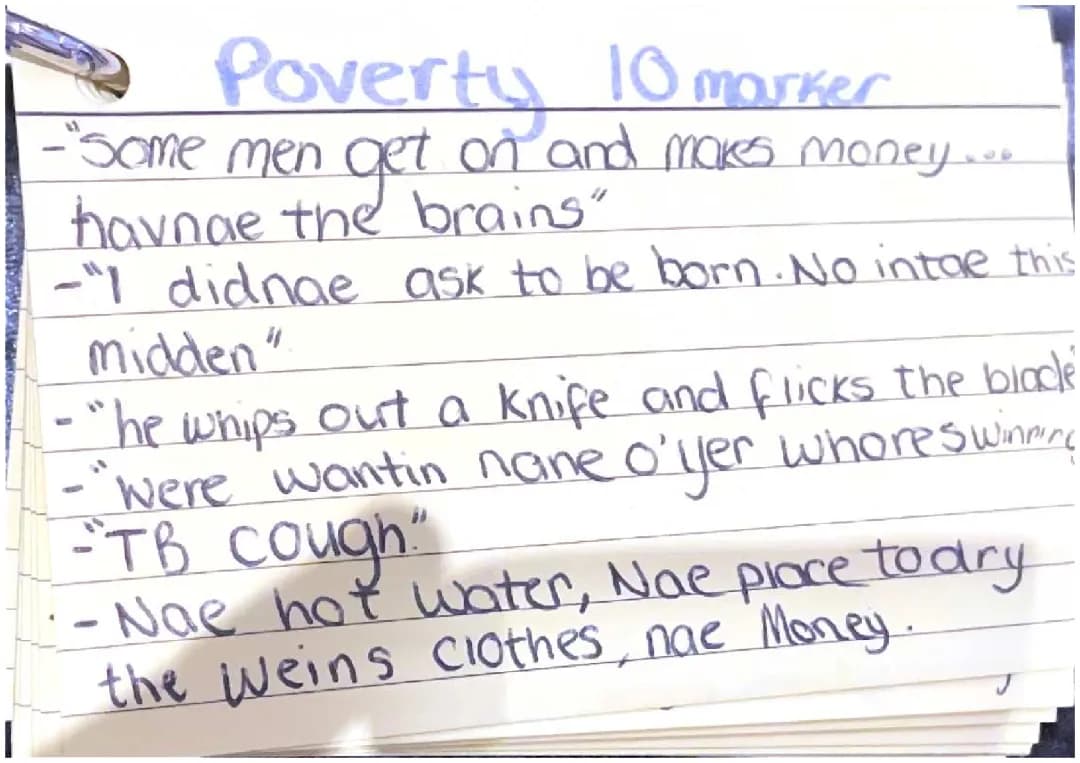 Poverty 10 marker
-"Some men get on and makes money...
havnae the brains"
-"I didnae ask to be born. No intae this
midden"
-"he whips out a knife and flicks the blade"
-"were wantin nane o'yer whores winnins
-"TB cough"
- Nae hot water, Nae place to dry
the weins clothes, nae Money.